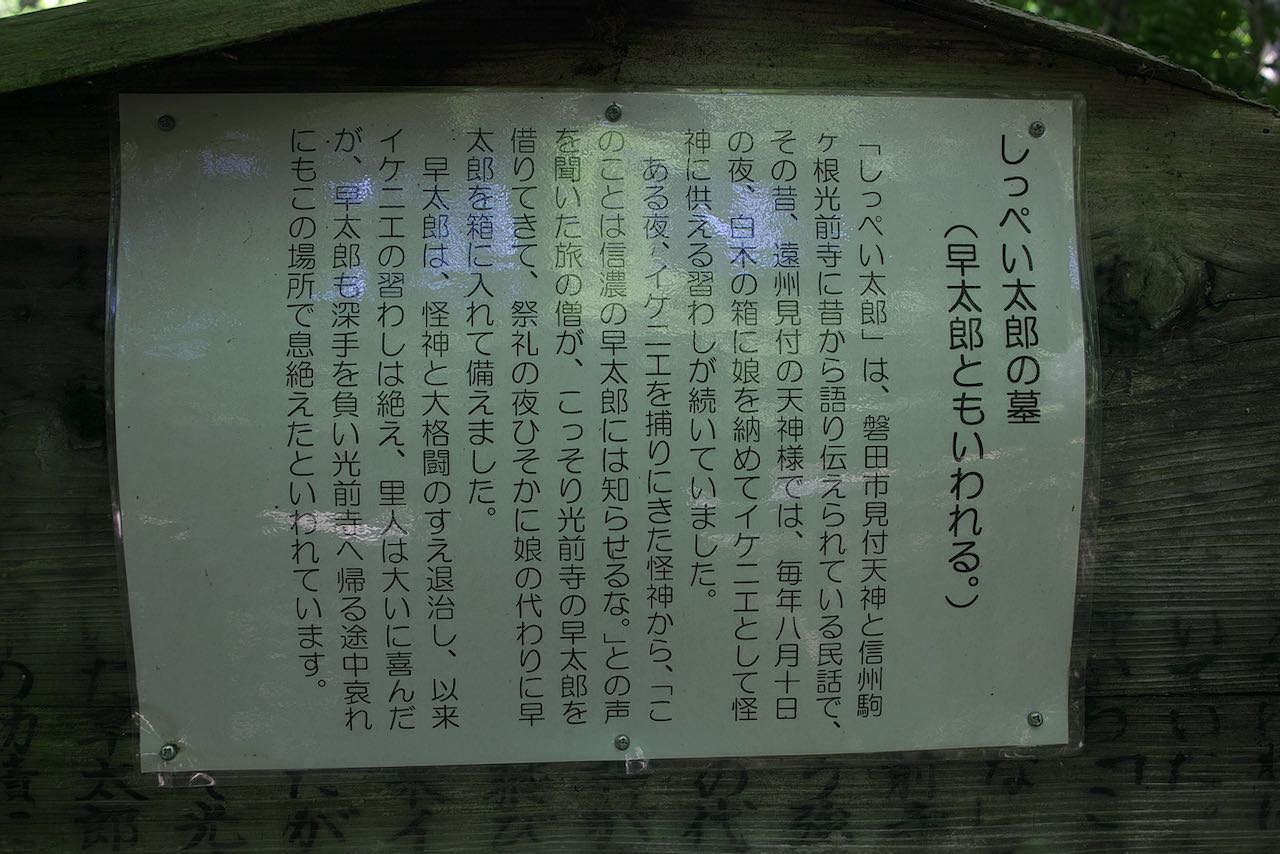 しっぺい太郎の墓
（早太郎ともいわれる。）
「しっぺい太郎」は、磐田市見付天神と信州駒
ヶ根光前寺に昔から語り伝えられている民話で、
その昔、遠州見付の天神様では、毎年八月十日
の夜、白木の箱に娘を納めてイケニエとして怪
神に供える習わしが続いていました。
ある夜、イケニエを捕りにきた怪神から、「こ
のことは信濃の早太郎には知らせるな。」との声
を聞いた旅の僧が、こっそり光前寺の早太郎を
借りてきて、祭礼の夜ひそかに娘の代わりに早
太郎を箱に入れて備えました。
早太郎は、怪神と大格闘のすえ退治し、以来
イケニエの習わしは絶え、里人は大いに喜んだ
が、早太郎も深手を負い光前寺へ帰る途中哀れ
にもこの場所で息絶えたといわれています。
の代
が
太郎